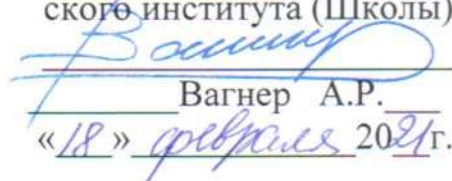 ского института (Школы)
Вагнер А.Р.
«18» февраля 2021г.